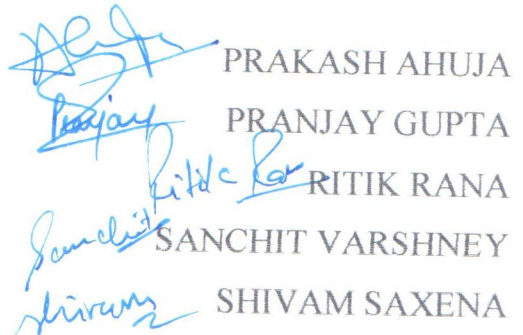 Ahuja PRAKASH AHUJA
Pranjay PRANJAY GUPTA
Ritik Rana RITIK RANA
Sanchit SANCHIT VARSHNEY
Shivam SHIVAM SAXENA